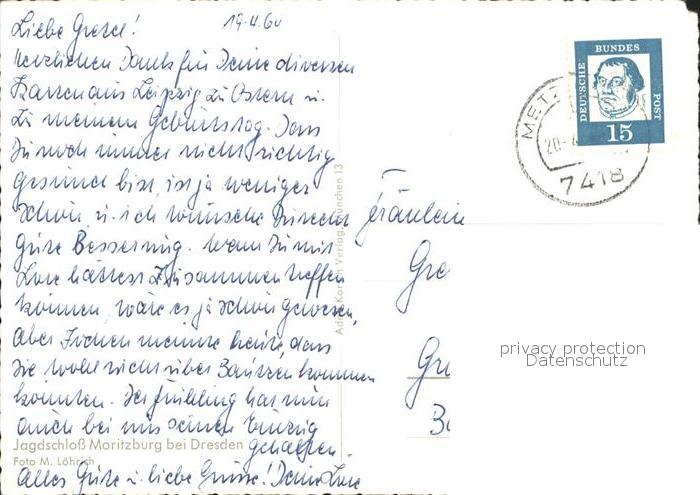 19.4.60
Liebe Gretel!
Herzlichen Dank für Deine diversen
Karten aus Leipzig zu Ostern u.
zu meinem Geburtstag. Dass
Du noch immer nicht richtig
gesund bist, ist ja weniger
schön u. ich wünsche Dir recht
gute Besserung. Wenn Du mit
Lore hättest zusammentreffen
können, wäre es ja schön gewesen,
aber meinte heute, dass
Sie wohl nicht über Bautzen kommen
könnten. Der Frühling hat nun
auch bei uns seinen Einzug
gehalten.
Alles Gute u. liebe Grüsse! Deine Lore
Jagdschloß Moritzburg bei Dresden
Foto M. Löhrich
Verlag, München 13
DEUTSCHE
BUNDES
POST
15
METZ
20.
7418
Fräulein
Gre
Gr
privacy protection
Datenschutz